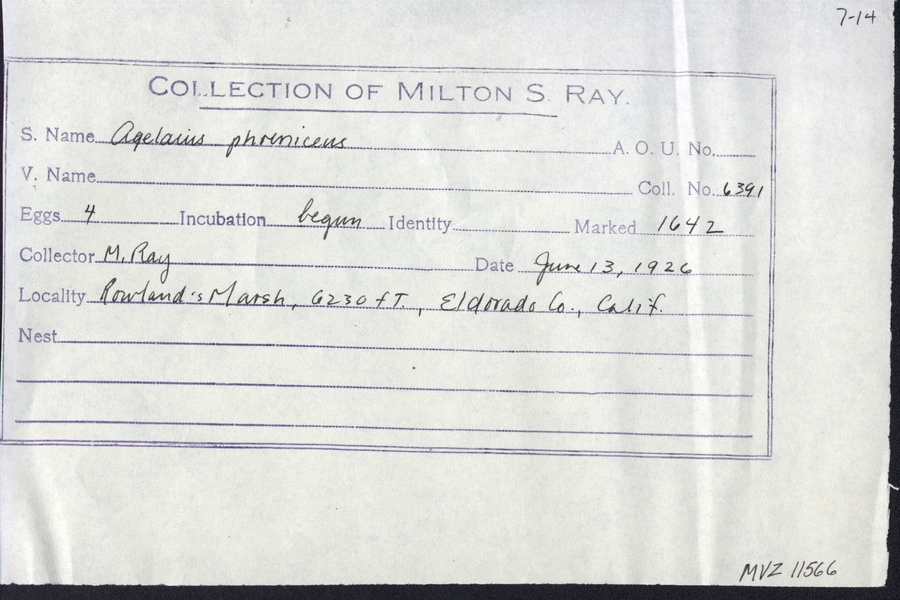 7-14
COLLECTION OF MILTON S. RAY.
S. Name Agelaius phoeniceus A. O. U. No.
V. Name Coll. No. 6391
Eggs 4 Incubation begun Identity Marked 1642
Collector M. Ray Date June 13, 1926
Locality Rowland's Marsh, 6230 fT., Eldorado Co., Calif.
Nest
MVZ 11566